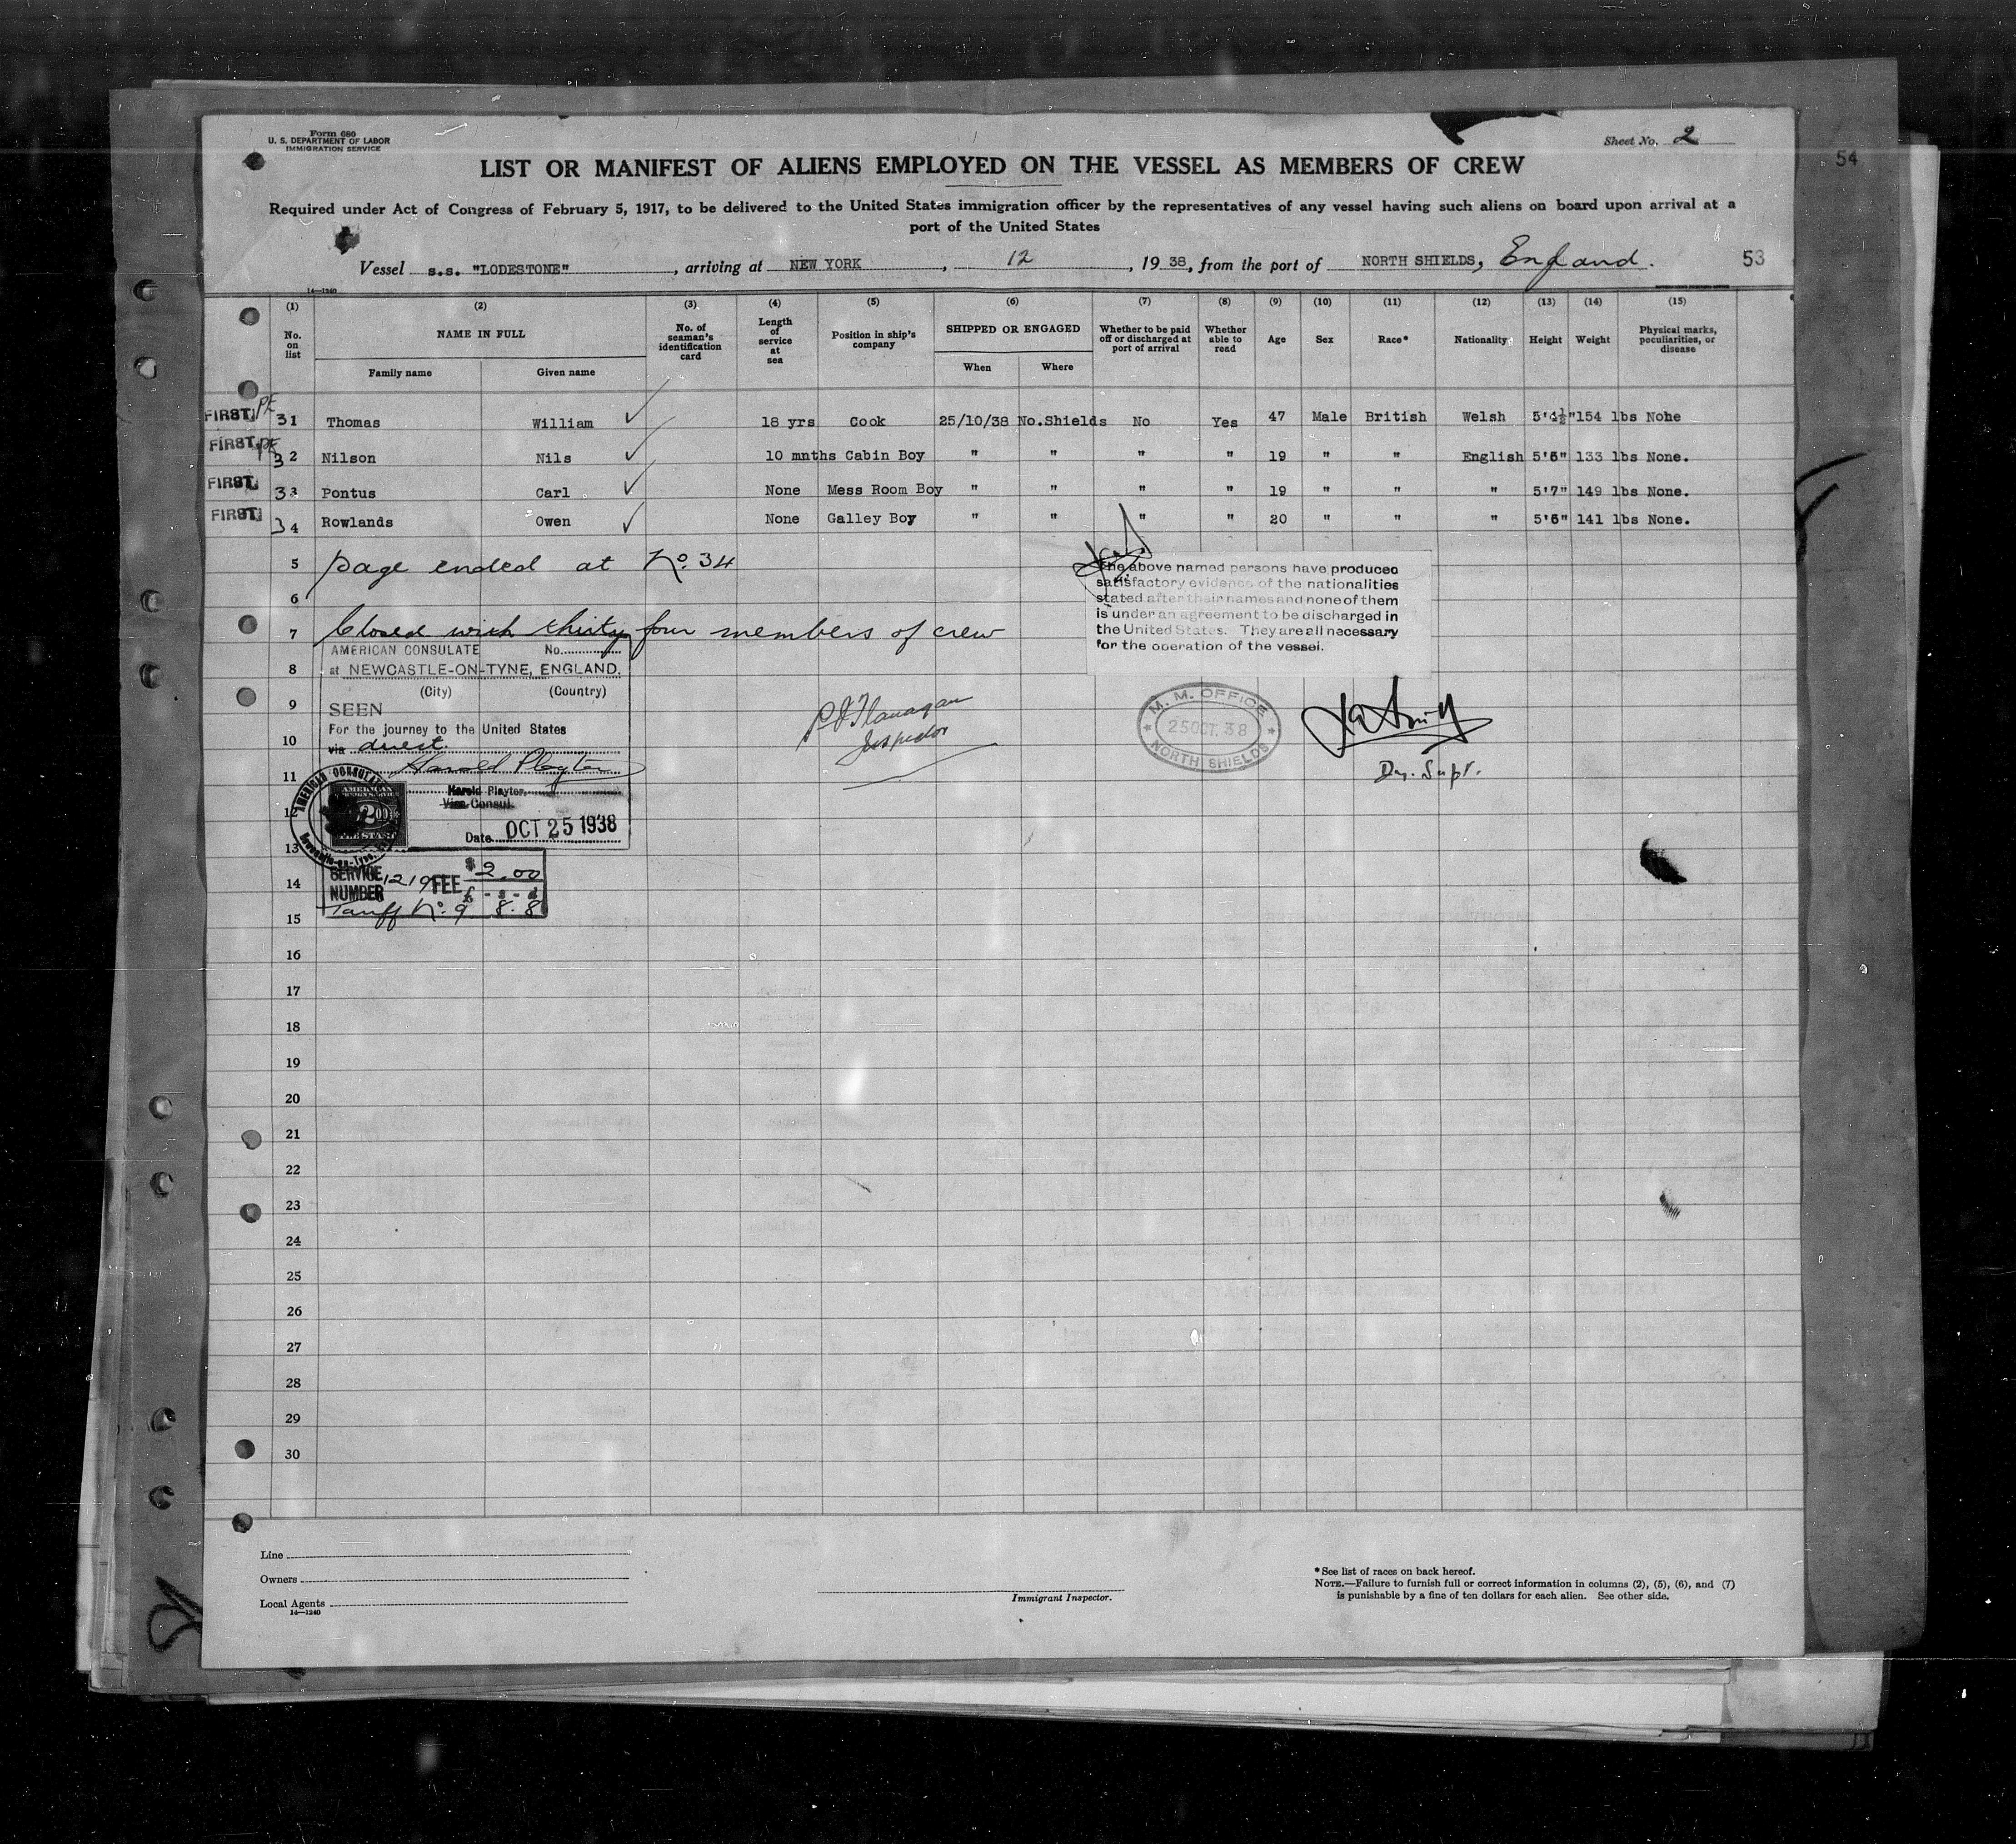 Form 680
U. S. DEPARTMENT OF LABOR
IMMIGRATION SERVICE
Sheet No. 2
54
LIST OR MANIFEST OF ALIENS EMPLOYED ON THE VESSEL AS MEMBERS OF CREW
Required under Act of Congress of February 5, 1917, to be delivered to the United States immigration officer by the representatives of any vessel having such aliens on board upon arrival at a
port of the United States
Vessel s.s. "LODESTONE", arriving at NEW YORK, 12, 1938, from the port of NORTH SHIELDS, England. 53
14—1240
(1) (2) (3) (4) (5) (6) (7) (8) (9) (10) (11) (12) (13) (14) (15)
No. on list NAME IN FULL Family name Given name No. of seaman's identification card Length of service at sea Position in ship's company SHIPPED OR ENGAGED When Where Whether to be paid off or discharged at port of arrival Whether able to read Age Sex Race* Nationality Height Weight Physical marks, peculiarities, or disease
FIRST PE 31 Thomas William 18 yrs Cook 25/10/38 No.Shields No Yes 47 Male British Welsh 154 lbs None
FIRST PE 32 Nilson Nils 10 mnths Cabin Boy " " " " 19 " " English 133 lbs None.
FIRST 33 Pontus Carl None Mess Room Boy " " " " 19 " " " 5'7" 149 lbs None.
FIRST 34 Rowlands Owen None Galley Boy " " " " 20 " " " 141 lbs None.
5 page ended at No. 34
6
7 Closed with thirty four members of crew
The above named persons have produced
satisfactory evidence of the nationalities
stated after their names and none of them
is under an agreement to be discharged in
the United States. They are all necessary
for the operation of the vessel.
AMERICAN CONSULATE No.
8 at NEWCASTLE-ON-TYNE, ENGLAND.
(City) (Country)
9 SEEN
For the journey to the United States
10 via direct.
Harold Playter
11
Harold Playter
Vice Consul.
12
Date OCT 25 1938
AMERICAN CONSULATE
Newcastle-on-Tyne
AMERICAN
2.00
P J Flanagan
Inspector
M. M. OFFICE
25 OCT. 38
NORTH SHIELDS
Dy. Supt.
13
SERVICE NUMBER 1219 FEE $2.00
14 £ - s - d
Tariff No. 9 8.8
15
16
17
18
19
20
21
22
23
24
25
26
27
28
29
30
Line
Owners
Local Agents
14—1240
Immigrant Inspector.
*See list of races on back hereof.
NOTE.—Failure to furnish full or correct information in columns (2), (5), (6), and (7)
is punishable by a fine of ten dollars for each alien. See other side.